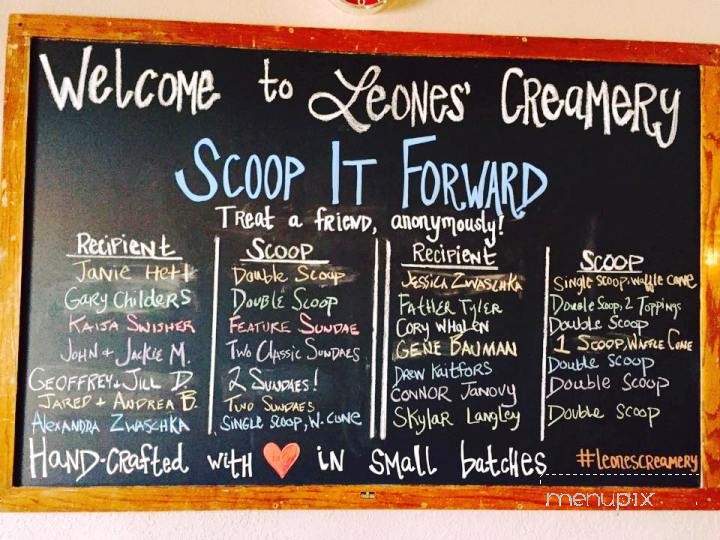 Welcome to Leones' Creamery
Scoop It Forward
Treat a friend, anonymously!
Recipient Scoop
Janie Hett Double Scoop
Gary Childers Double Scoop
Kaisa Swisher Feature Sundae
John + Jackie M. Two Classic Sundaes
Geoffrey + Jill D. 2 Sundaes!
Jared + Andrea B. Two Sundaes
Alexandra Zwaschka Single Scoop, W. Cone
Recipient Scoop
Jessica Zwaschka Single Scoop, Waffle Cone
Father Tyler Double Scoop, 2 Toppings
Cory Whalen Double Scoop
Gene Bauman 1 Scoop, Waffle Cone
Drew Kaitfors Double Scoop
Connor Janovy Double Scoop
Skylar Langley Double Scoop
Hand-crafted with ❤ in small batches
#leonescreamery
menupix